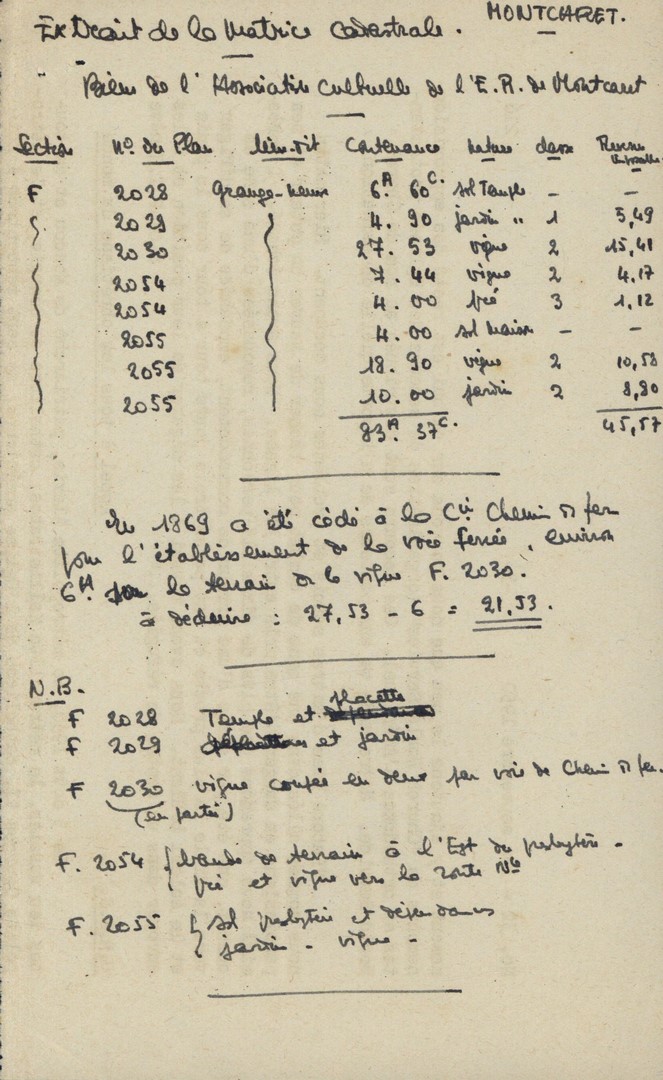 MONTCARET.
Extrait de la Matrice cadastrale.
Biens de l'Association cultuelle de l'E.R. de Montcaret
Section No du Plan lieu-dit Contenance nature classe Revenu imposable
F 2028 Grange-neuve 6A. 60C. sol Temple – –
2029 4. 90 jardin " 1 5,49
2030 27. 53 vigne 2 15,41
2054 7. 44 vigne 2 4,17
2054 4. 00 pré 3 1,12
2055 4. 00 sol maison – –
2055 18. 90 vigne 2 10,58
2055 10. 00 jardin 2 8,80
83A. 37C. 45,57
En 1869 a été cédé à la Cie Chemin de fer
pour l'établissement de la voie ferrée, environ
6A sur le terrain de la vigne F. 2030.
à déduire : 27,53 - 6 = 21,53.
N.B.
placette
F 2028 Temple et
F 2029 et jardin
F 2030 vigne coupée en deux par voie de Chemin de fer.
(en partie)
F. 2054 { bande de terrain à l'Est du presbytère -
pré et vigne vers la route Nle
F. 2055 { sol presbytère et dépendances
jardin - vigne -